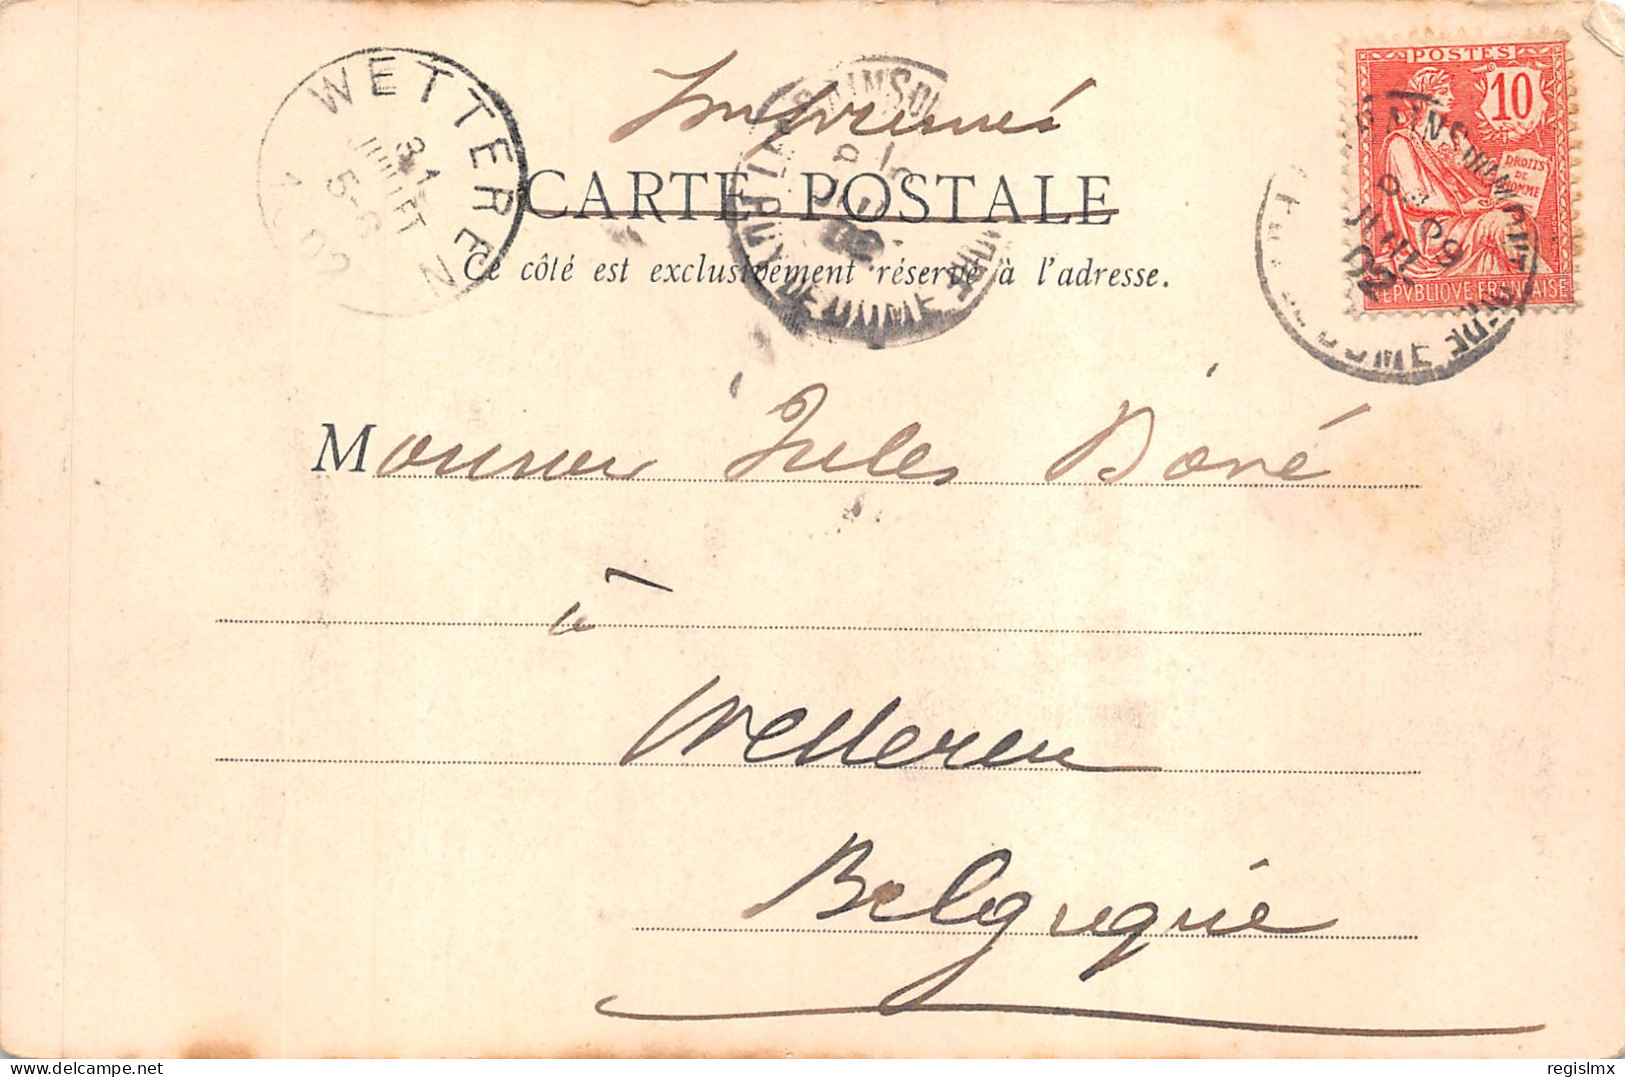 WETTEREN
31
JUILLET
5-6
Imprimé
CARTE POSTALE
Ce côté est exclusivement réservé à l'adresse.
POSTES
10
DROITS
DE
L'HOMME
REPVBLIQVE FRANÇAISE
JUIL
02
Monsieur Jules Boné
à
Wetteren
Belgique
regislmx